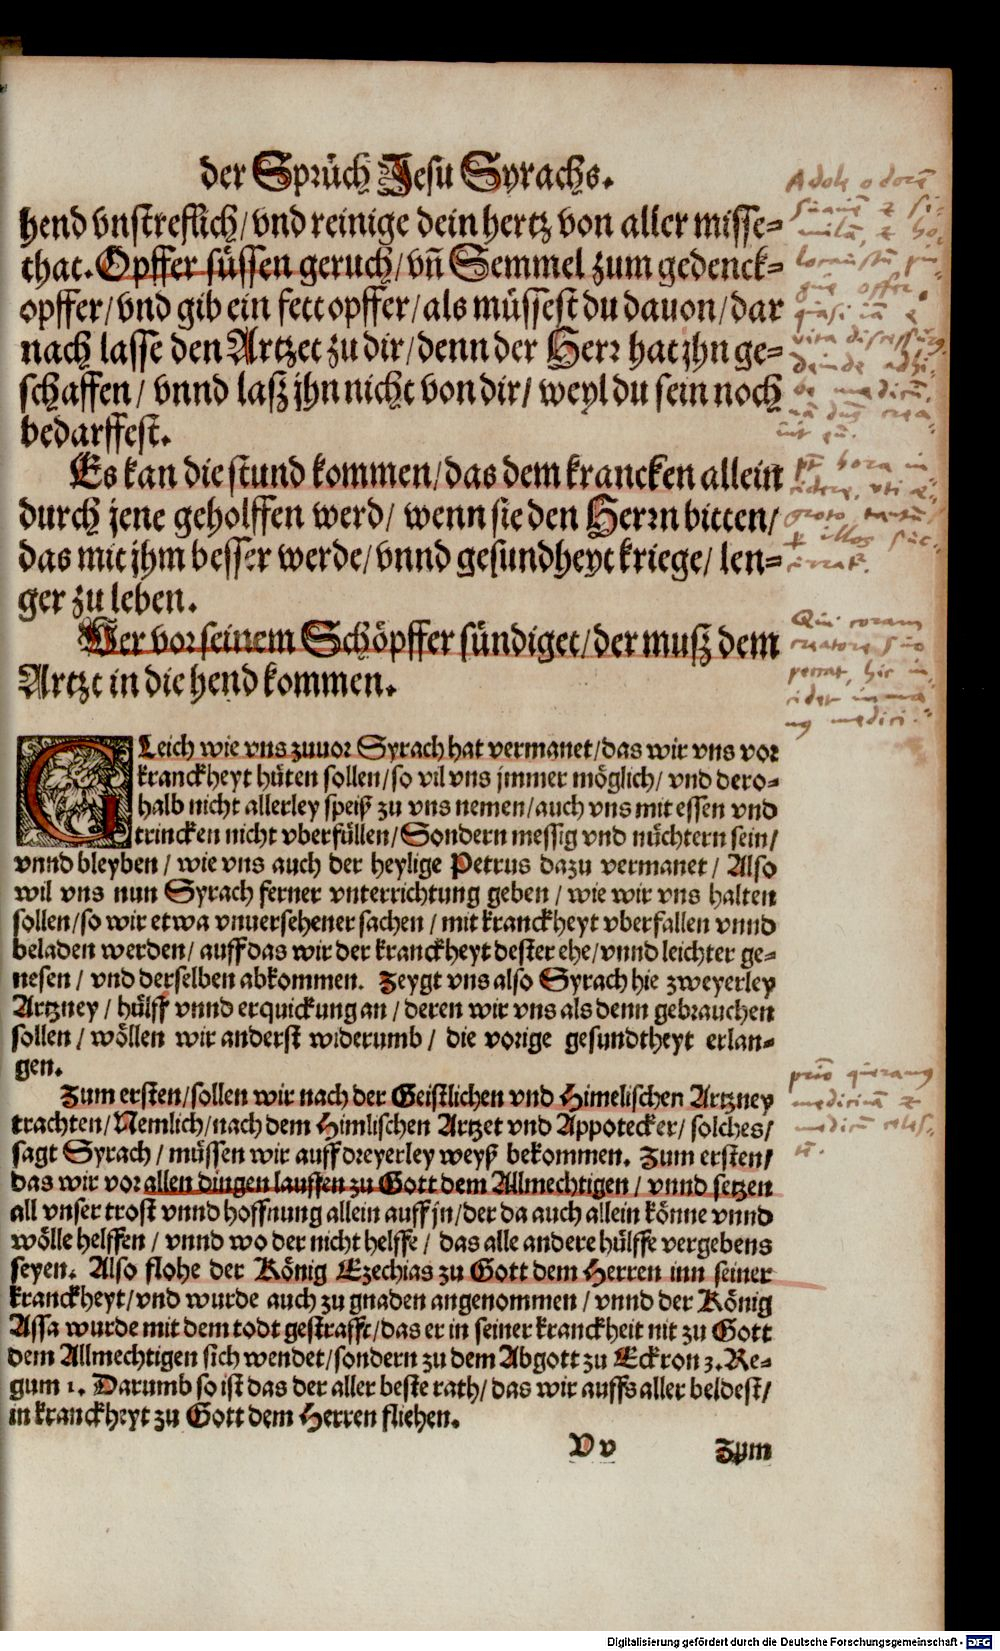 der Sprüch Jesu Syrachs.
hend vnstreflich/vnd reinige dein hertz von aller misse=
that. Opffer süssen geruch/vñ Semmel zum gedenck=
opffer/vnd gib ein fett opffer/als müssest du dauon/dar
nach lasse den Artzet zu dir/denn der Herr hat jhn ge=
schaffen/vnnd lasz jhn nicht von dir/weyl du sein noch
bedarffest.
Es kan die stund kommen/das dem krancken allein
durch jene geholffen werd/wenn sie den Herrn bitten/
das mit jhm besser werde/vnnd gesundheyt kriege/len=
ger zu leben.
Wer vor seinem Schöpffer sündiget/der musz dem
Artzt in die hend kommen.
GLeich wie vns zuuor Syrach hat vermanet/das wir vns vor
kranckheyt hüten sollen/so vil vns jmmer möglich/vnd dero=
halb nicht allerley speiß zu vns nemen/auch vns mit essen vnd
trincken nicht vberfüllen/Sondern messig vnd nüchtern sein/
vnnd bleyben/wie vns auch der heylige Petrus dazu vermanet/Also
wil vns nun Syrach ferner vnterrichtung geben/wie wir vns halten
sollen/so wir etwa vnuersehener sachen/mit kranckheyt vberfallen vnnd
beladen werden/auff das wir der kranckheyt dester ehe/vnnd leichter ge=
nesen/vnd derselben abkommen. Zeygt vns also Syrach hie zweyerley
Artzney/hülff vnnd erquickung an/deren wir vns als denn gebrauchen
sollen/wöllen wir anderst widerumb/die vorige gesundtheyt erlan=
gen.
Zum ersten/sollen wir nach der Geistlichen vnd Himelischen Artzney
trachten/Nemlich/nach dem Himlischen Artzet vnd Appotecker/solches/
sagt Syrach/müssen wir auff dreyerley weyß bekommen. Zum ersten/
das wir vor allen dingen lauffen zu Gott dem Allmechtigen/vnnd setzen
all vnser trost vnnd hoffnung allein auff jn/der da auch allein könne vnnd
wölle helffen/vnnd wo der nicht helffe/das alle andere hülffe vergebens
seyen. Also flohe der König Ezechias zu Gott dem Herren inn seiner
kranckheyt/vnd wurde auch zu gnaden angenommen/vnnd der König
Assa wurde mit dem todt gestrafft/das er in seiner kranckheit nit zu Gott
dem Allmechtigen sich wendet/sondern zu dem Abgott zu Eckron 3. Re=
gum 1. Darumb so ist das der aller beste rath/das wir auffs aller beldest/
in kranckheyt zu Gott dem Herren fliehen.
Vv Zum
Adole odorē
suauē & si-
milā, & ho-
locaustū pin-
gue offer,
quasi iā e
vita discessurus,
deinde adhi-
be medicū,
nā dūs crea-
uit eū.
hora in
cidere, vti ae-
groto, tantū
illos suc-
Qui coram
creatore suo
peccat, hic in-
cidet in ma-
nus medici.
primo queramus
medicinā &
medicū celes-
tē.
Digitalisierung gefördert durch die Deutsche Forschungsgemeinschaft - DFG